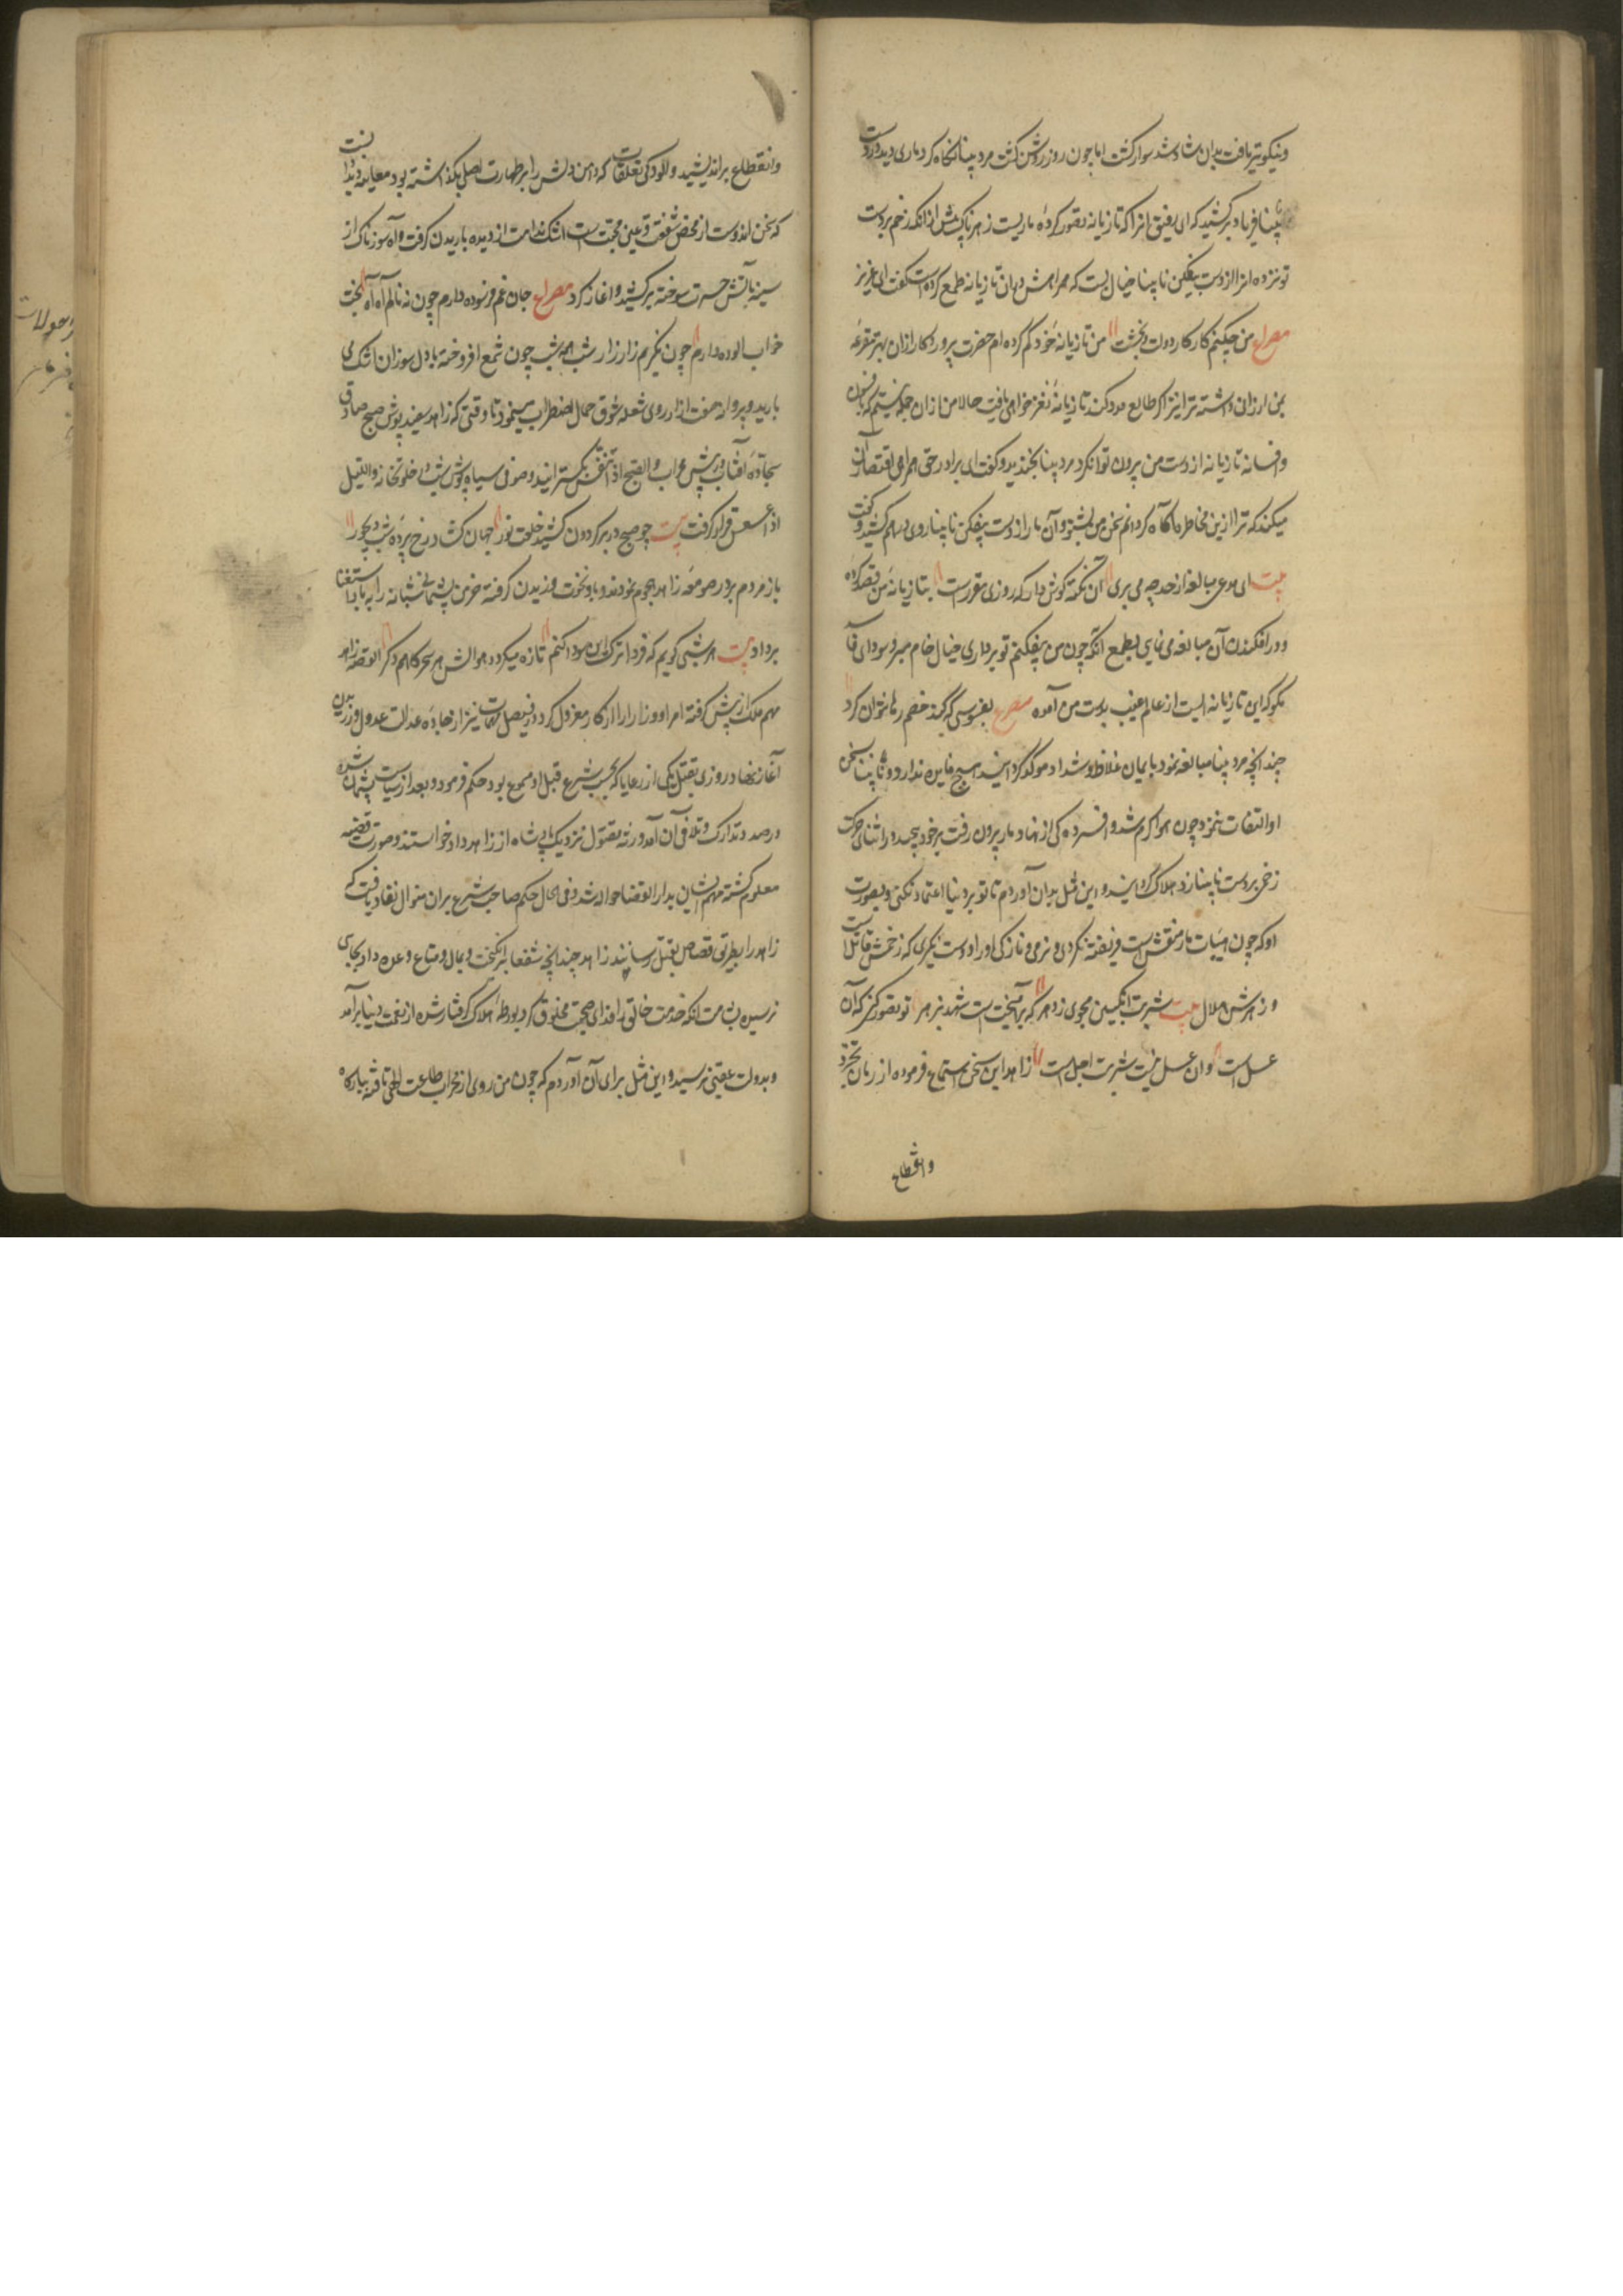 ونیکوتر یافت بدان شاد شد سوار گشت اما چون روز روشن گشت مرد بینا نگاه کرد ماری دید در دست
نابینا فریاد برکشید که ای رفیق انرا که تازیانه تصور کردهٔ ماریست زهرناک پیش از انکه زخم بر دست
تو زند انرا از دست بیفکن نابینا خیال بست که همراهش بدان تازیانه طمع کرده است گفت ای عزیز
مصراع من چکنم کار کار دولت و بختست من تازیانهٔ خود گم کرده ام حضرت پروردکار ازان بهتر مقرعهٔ
بمن ارزان داشته ترا نیز اگر طالع مدد کند تازیانهٔ نغز خواهی یافت حالا من ازان جمله نیستم که بافسون
وافسانه تازیانه از دست من بیرون توان کرد مرد بینا بخندید و گفت ای برادر حق همراهی اقتضا آن
میکند که ترا ازین مخاطره آگاه گردانم سخن من بشنو و آن مار از دست بیفکن نابینا روی درهم کشید و گفت
بیت ای مدعی مبالغه از حد چه می بری آن نکته گوش دار که روزی مقررست تا زیانهٔ من قصد کردهٔ
و در افکندن آن مبالغه می نمایی بطمع انکه چون من بیفکنم تو برداری خیال خام مبر و سودای فاسد
مکو که این تازیانه ایست از عالم غیب بدست من آمده مصرع بفسوسی که کند خصم رها نتوان کرد
چندانچه مرد بینا مبالغه نمود بایمان غلاظ و شداد موکد گردانید هیچ فایده نداد و نابینا بسخن
او التفات ننمود چون هوا گرم شد و افسردگی از نهاد مار بیرون رفت بر خود پیچید و در اثنای حرکت
زخمی بر دست نابینا زد هلاک گردانید و این مثل بدان آوردم تا تو بر دنیا اعتماد نکنی و بصورت
او که چون هیئات مار منقش است فریفته نگردی و نرمی و نازکی او را دوست نگیری که زخمش قاتلست
و زهرش هلال بیت شربت انگبین مجوی ز دهر که برآمیخت است شهد بزهر تو تصور کنی که آن
عسل است وان عسل نیست شربت اجل است زاهد این سخن استماع فرموده از زمان تجرد
وانقطاع
وانقطاع براندیشید و آلودگی تعلقات که دامن دلش را بر طهارت اصلی بگذاشته بود معاینه دید دانست
که سخن اندوست از محض شفقت و عین محبت است اشک ندامت از دیده باریدن گرفت و آه سوزناک از
سینه بآتش حسرت سوخته برکشید و اغاز کرد مصراع جان غم فرسوده دارم چون نه نالم آه آه بخت
خواب الوده دارم چون نگریم زار زار شب همه شب چون شمع افروخته با دل سوزان اشک می
بارید و پروانه صفت از آرزوی شعله شوق جمال اضطراب مینمود تا وقتی که زاهد سفید پوش صبح صادق
سجادهٔ آفتاب در پیش محراب والصبح اذا تنفس گسترانید و صوفی سیاه پوش شب در خلوتخانه واللیل
اذا عسعس قرار گرفت بیت چو صبح دربر گردون کشید خلعت نور جهان گشاد ز رخ پردهٔ شب دیجور
باز مردم بدر صومعهٔ زاهد هجوم نمودند و باد نخوت وزیدن گرفته خرمن پشیمانی شبانه را بباد استغنا
برداد بیت هر شبی گویم که فردا ترک این سودا کنم تازه میگردد هوایش هر سحرگاهم دگر القصه زاهد
مهم ملک از پیش گرفته امرا و وزرا را از کار معزول کرد و در فیصل مهمات نیز از جادهٔ عدالت عدول ورزیدن
آغاز نهاد روزی بقتل یکی از رعایا که بحسب شرع قتل او ممنوع بود حکم فرمود و بعد از سیاست پشیمان شده
درصدد تدارک و تلافی آن آمد ورثه مقتول نزدیک پادشاه از زاهد داد خواستند و صورت قضیه
معلوم گشته مهم ایشان بدار القضا حواله شد و فی الحال حکم صاحب شرع بران منوال نفاذ یافت که
زاهد را بطریق قصاص بقتل رسانند زاهد چندانچه شفعا برانگیخت و بمال و متاع وعده داد بجایی
نرسید بشامت انکه خدمت خالق را فدای صحبت مخلوق کرد بورطهٔ هلاک گرفتار شده از نعمت دنیا برآمد
و بدولت عقبی نرسید و این مثل برای آن آوردم که چون من روی از محراب طاعت الهی تافته ببارگاه